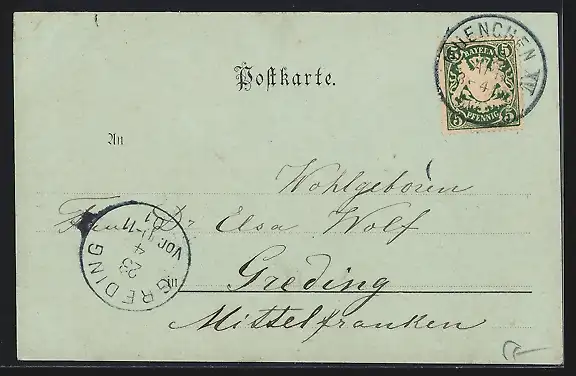 MUENCHEN XV
5 BAYERN 5
5 PFENNIG 5
Postkarte.
An
Wohlgeboren
Elsa Wolf
in Greding
Mittelfranken
GREDING
23
4
VOR 11-11
01